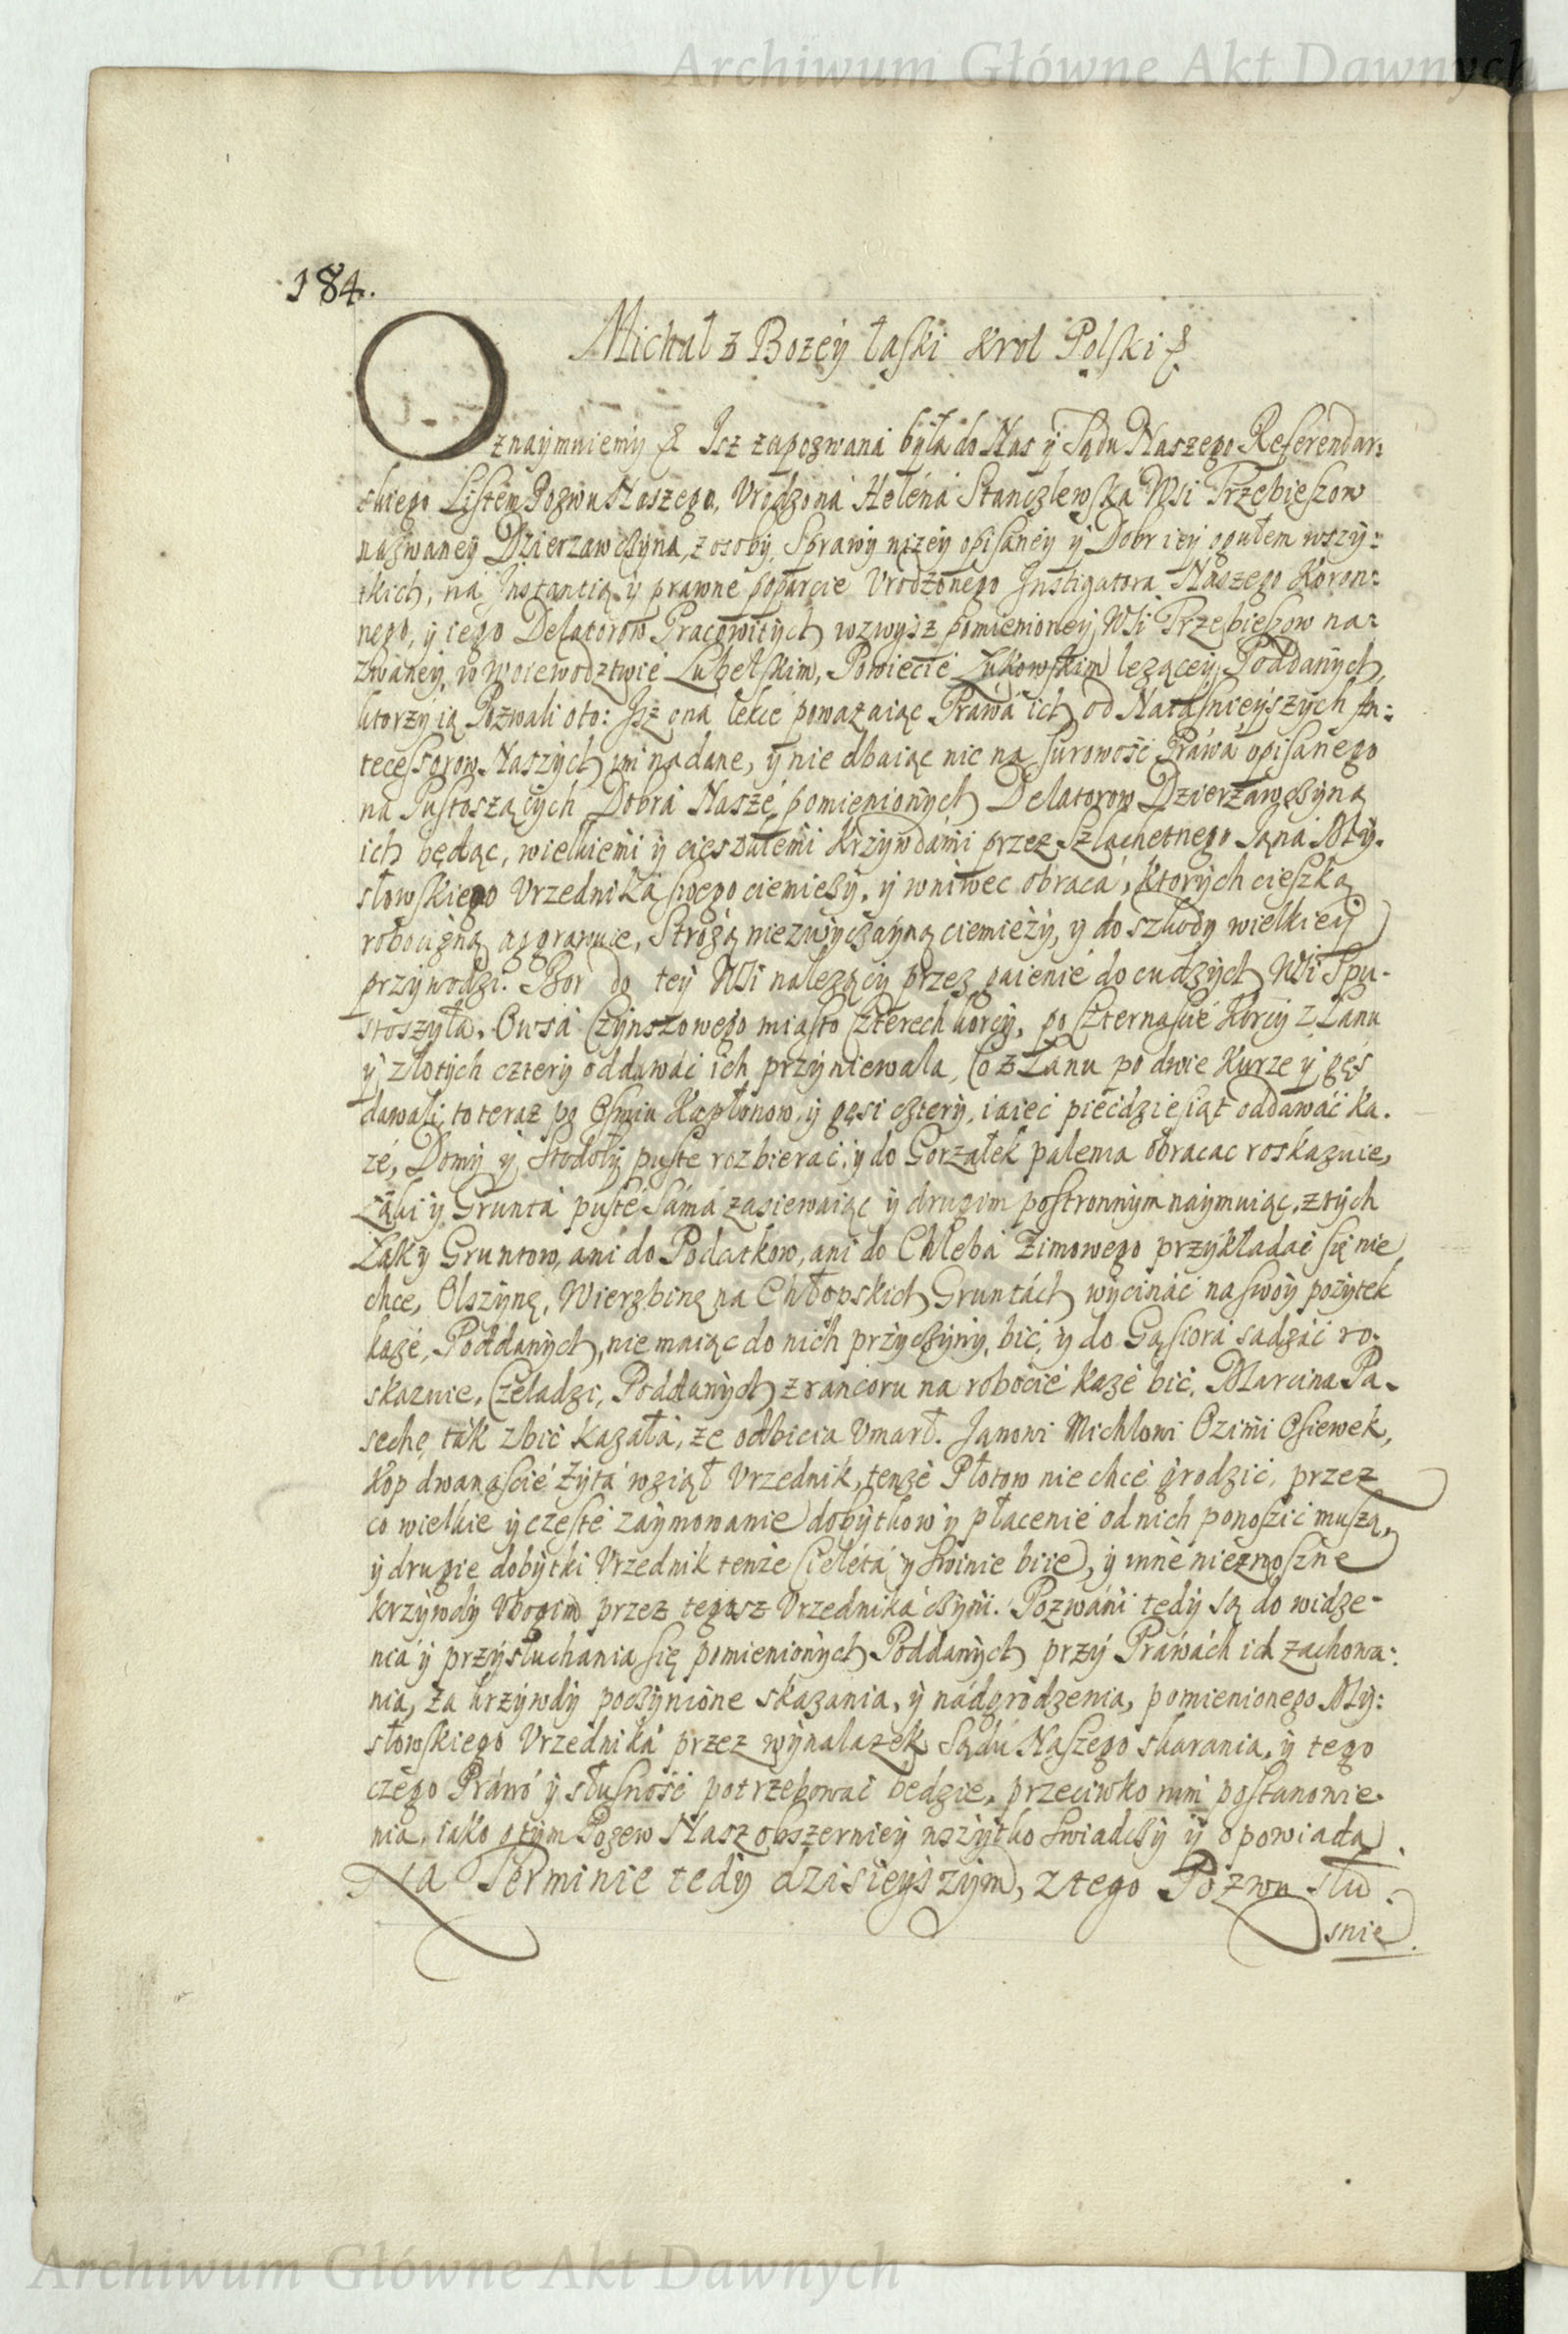 Archiwum Główne Akt Dawnych
184.
Michał z Bozéy łaski Krol Polski &
Oznaymuiemy & Isz zapozwana była do Nas y Sądu Naszego Referendar:
skiego Listem Pozwu Naszego, Vrodzona Helena Stanczlewska Wsi Trzebieszow
nazwaney Dzierzawczyna, z osoby, Sprawy nizey opisaney y Dobr iey ogułem wszy:
tkich, na Instantią y prawne poparcie Vrodzonego Instigatora Naszego Koron:
nego, y iego Delatorow Pracowitych wzwysz pomienioney Wsi Trzebieszow na:
zwaney, w Woiewodztwie Lubelskim, Powiecie Łukowskim lezącey, Poddanych,
ktorzy ią Pozwali oto: Isz ona lekce powazaiąc Prawa ich od Naiasnieyszych An:
tecessorow Naszych im nadane, y nie dbaiąc nic na surowosc Prawa opisanego
na Pustoszących Dobra Nasze, pomienionych Delatorow Dzierzawczyną
ich będąc, wielkiemi y cięszkiemi Krzywdami przez Szlachetnego Jana My:
słowskiego Vrzednika swego ciemięzy, y wniwec obraca, ktorych cieszką
robocizną aggrawuie, Strozą niezwyczayną ciemiezy, y do szkody wielkiey
przywodzi. Bor do tey Wsi nalezący przez gaienie do cudzych Wsi Spu-
stoszyła, Owsa Czynszowego miasto Czterech korcy, po Czternascie Korcy z Łanu
y złotych cztery oddawac ich przyniewala, Co z Łanu po dwie Kurze y gęs
dawali, to teraz po Osmiu Kapłonow, y gęsi cztery, iaiec piecdziesiąt oddawac ka-
ze, Domy y Stodoły puste rozbierac, y do Gorzałek palenia obracac roskazuie,
Łąki y Grunta puste sama zasiewaiąc y drugim postronnym naymuiąc, z tych
Łąk y Gruntow, ani do Podatkow, ani do Chleba Zimowego przykładac się nie
chce, Olszynę, Wierzbinę na Chłopskich Gruntach wycinac na swoy pozytek
kaze, Poddanych, nie maiąc do nich przyczyny, bic, y do Gąsiora sadzac ro-
skazuie, Czeladzi, Poddanych z rancoru na robocie kaze bic, Marcina Pa-
sechę tak zbic kazała, ze odbicia Vmarł. Janowi Michlowi Ozimi Osiewek,
Kop dwanascie Zyta wziął Vrzednik, tenze Płotow nie chce grodzic, przez
co wielkie y częste zaymowanie dobytkow y płacenie od nich ponosic muszą,
y drugie dobytki Vrzednik tenze Cieleta y Swinie biie, y inne nieznosne
krzywdy Vbogim przez tegosz Vrzednika czyni. Pozwani tedy są do widze-
nia y przysłuchania się pomienionych Poddanych przy Prawach ich zachowa:
nia, za krzywdy poczynione skazania, y nadgrodzenia, pomienionego My:
słowskiego Vrzednika przez wynalazek Sądu Naszego skarania, y tego
czego Prawo y słusnosc potrzebowac bedzie, przeciwko nim postanowie-
nia, iako o tym Pozew Nasz obszerniey wszytko swiadczy y opowiada.
Na Terminie tedy dzisieyszym, z tego Pozwu słu-
snie.
Archiwum Główne Akt Dawnych